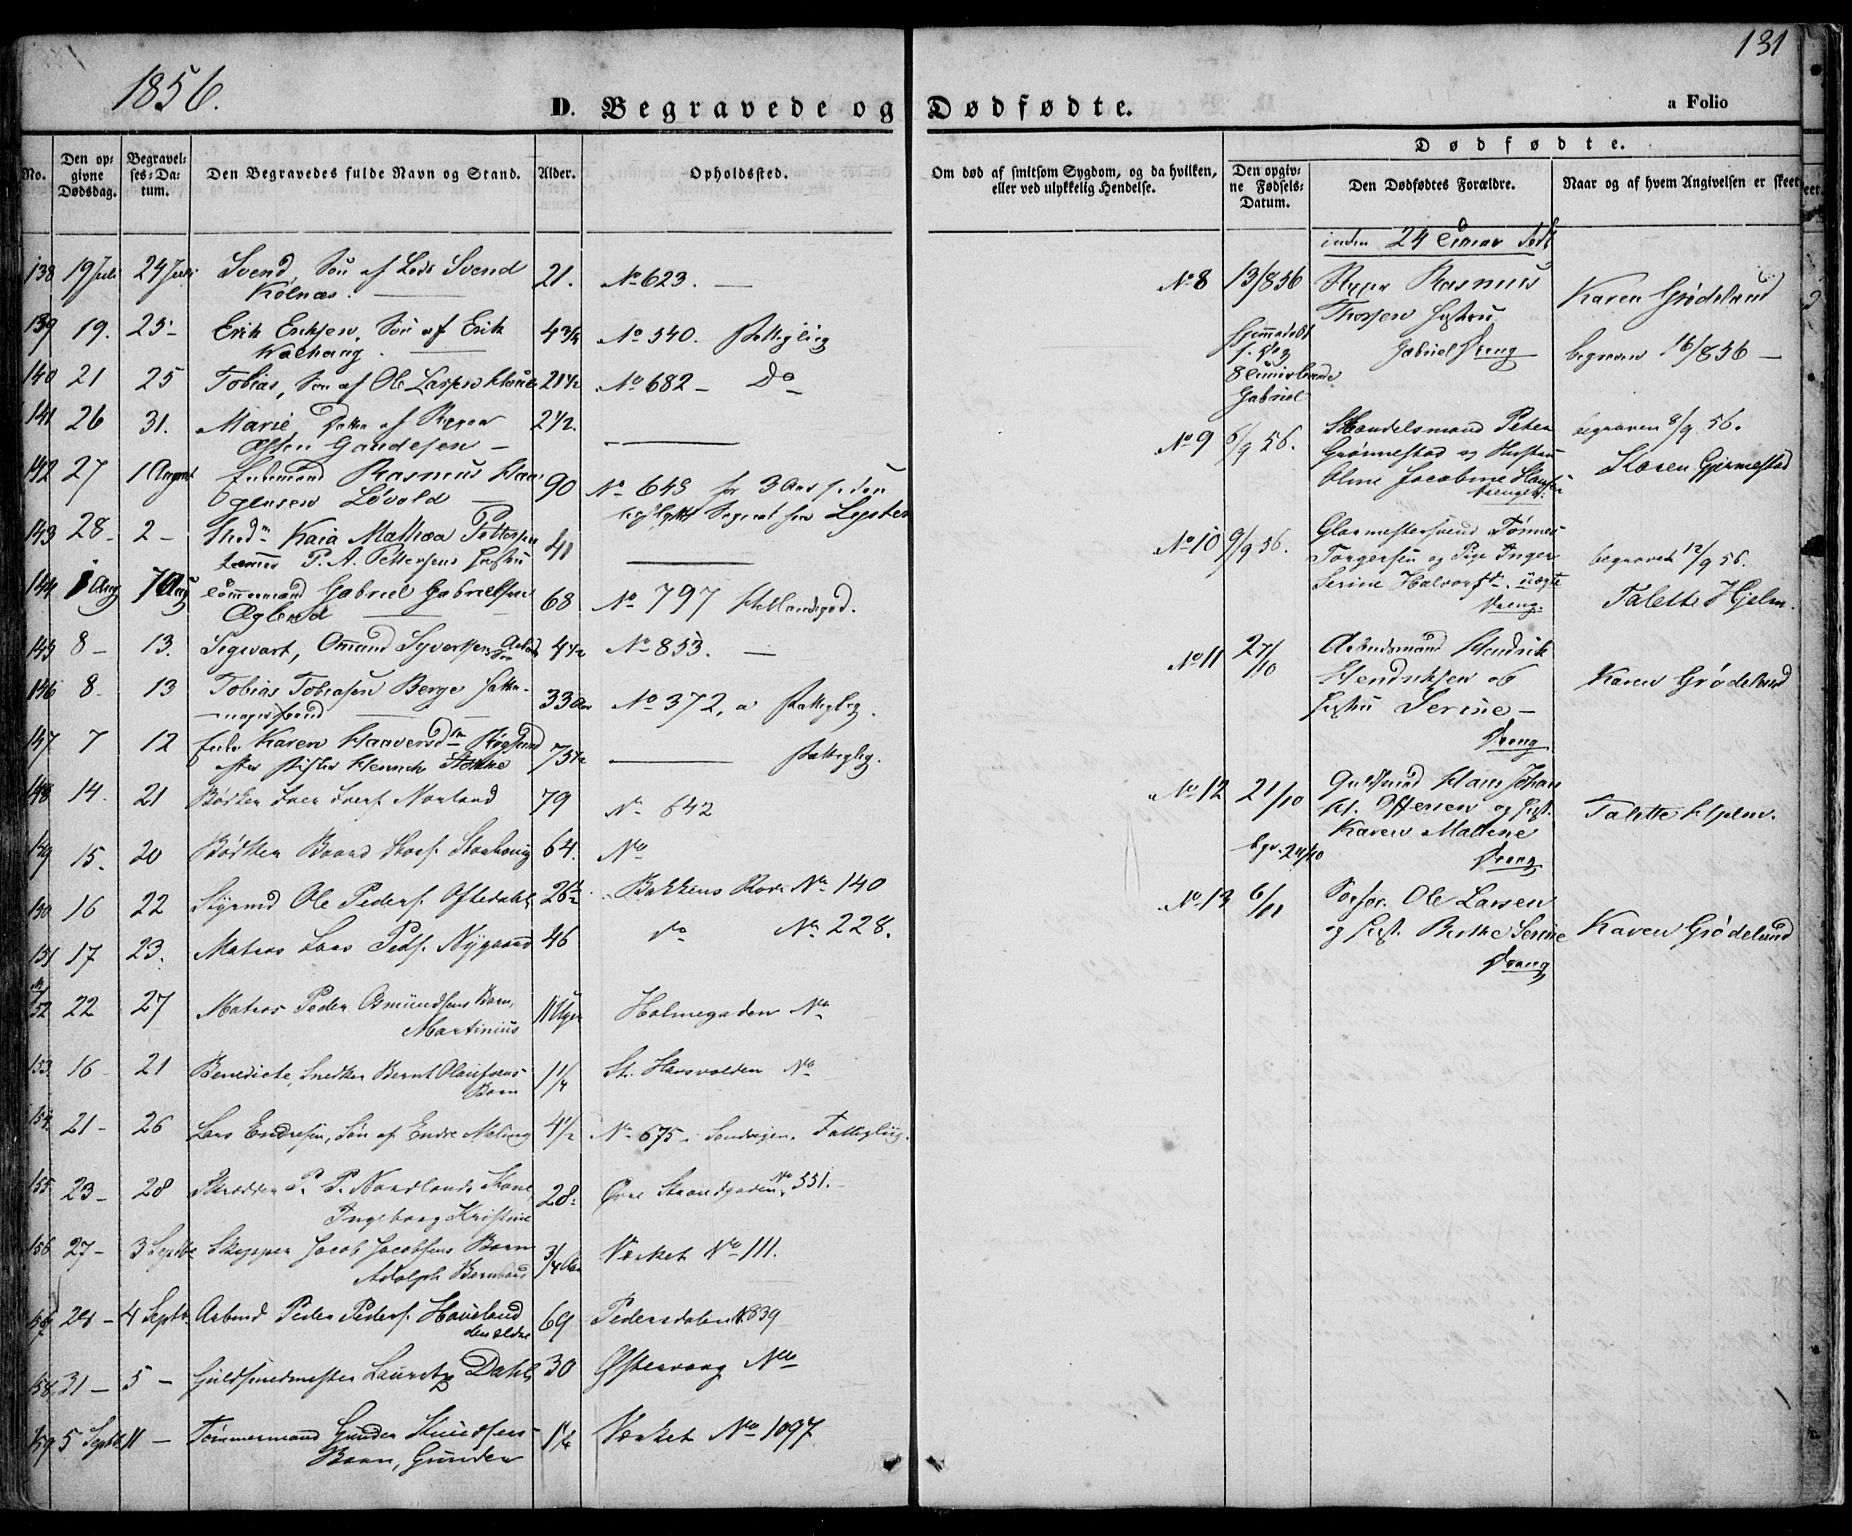 131
1856.
D. Begravede og Dødfødte.
a Folio
No.
Den opgivne Dødsdag.
Begravelses-Datum.
Den Begravedes fulde Navn og Stand.
Alder.
Opholdssted.
Om død af smitsom Sygdom, og da hvilken, eller ved ulykkelig Hendelse.
Dødfødte.
Den opgivne Fødsels-Datum.
Den Dødfødtes Forældre.
Naar og af hvem Angivelsen er skeet
138 19 Juli 24 Juli Svend, Søn af Svend 21. No 623. —
Kolnæs.
139 19. 25 - Erik Eriksen, Søn af Erik 4 3/4 No 540. Fattiglig
140 21 25 Tobias, Søn af Ole Larsen 21 1/2 No 682 - Do
141 26 31. Marie, Datter af 2 1/2. —
Gaudesen —
142 27 1 August Enkemand Rasmus 90 No 645 for 3 Aar siden
Løvold —
143 28 - 2 - Kaia Mathea Pettersen 41
P. A. Pettersens Hustru
144 1 Aug 7 Aug Tømmermand Gabriel Gabrielsen 68 No 797
Øglend
145 8 - 13. Sigvart, Omund Syvertsens 4 1/2 No 853. —
146 8. 13 Tobias Tobiasen Berge 33 Aar No 372, a Fattiglig.
147 7 12 Enke Karen 75 1/2 — Fattiglig.
148 14. 21 Bødker Iver Ivers. Norland 79 No 642
149 15. 20 Bødker Baard 64. No
150 16 22 Styrmd Ole Peders. Oftedahl 26 1/2 Bakkens Rode No 140
151 17 23. Matros Lars Peds. Nygaard 46 Do No 228.
152 22 27 Matros Peder Osmundsens Barn, 11 Uger Holmegaden No
Martinius
153. 16 21 Benedicte, Snedker Bernt Olaussens 1 1/4 St. Hansvolden No
Barn
154. 21 - 26 Lars Endresen, Søn af Endre Maling 4 1/2 No 675 - Sandvigen. Fattiglig.
155. 23 - 28 Skrædder P. P. Nordlands Kone 28. Øvre Strandgaden No 551.
Ingeborg Kristine
156 27 - 3 Septbr Skipper Jacob Jacobsens Barn 3/4 Aar Værket No 111.
Adolph Bernhard
157 28 - 4 Septb. Arbmd Peder Peders. Haueland 69 Pedersdalen No 839
den eldre
158. 31 - 5 - Guldsmedmester Lauritz Dahl 30 Østervaag No
159 5 Septbr 11 - Tømmermand Gunder Knudsens 1 1/4 Værket No 1097
Barn, Gunder
inden 24 Timer død
No 8 13/8 56 Rasmus Karen Grødeland
Thorsen Hustru
Gabriel Dreng begraven 16/8 56 —
Gabriel
No 9 6/9 56. Handelsmand Peter begraven 8/9 56.
Grønnestad og Hustru Karen Gjermestad
Oline Jacobine Hansen
No 10 9/9 56. Glarmestersvend Tønnes begravet 12/9 56.
Torgersen og Pige Inger
Serine Halvorsdtr. uægte Talette Hjelm.
Dreng.
No 11 27/10 Arbeidsmand Hendrik Karen Grødeland
Hendriksen og
Hustru Serine —
Dreng
No 12 21/10 Hans Johan Talette Hjelm.
og Hust.
Karen Maltene
bgr. 24/10 Dreng
No 13 6/11 Ole Larsen Karen Grødeland
og Hust. Berthe Serine
Dreng